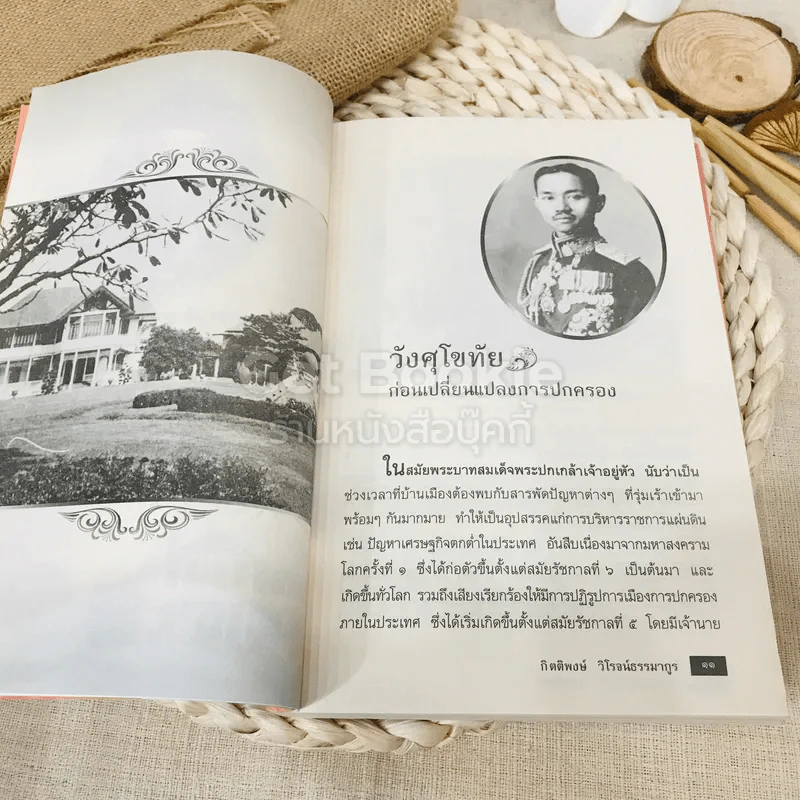 วังศุโขทัย
ก่อนเปลี่ยนแปลงการปกครอง
Get Bookie
ร้านหนังสือบุ๊คกี้
ในสมัยพระบาทสมเด็จพระปกเกล้าเจ้าอยู่หัว นับว่าเป็น
ช่วงเวลาที่บ้านเมืองต้องพบกับสารพัดปัญหาต่างๆ ที่รุ่มเร้าเข้ามา
พร้อมๆ กันมากมาย ทำให้เป็นอุปสรรคแก่การบริหารราชการแผ่นดิน
เช่น ปัญหาเศรษฐกิจตกต่ำในประเทศ อันสืบเนื่องมาจากมหาสงคราม
โลกครั้งที่ ๑ ซึ่งได้ก่อตัวขึ้นตั้งแต่สมัยรัชกาลที่ ๖ เป็นต้นมา และ
เกิดขึ้นทั่วโลก รวมถึงเสียงเรียกร้องให้มีการปฏิรูปการเมืองการปกครอง
ภายในประเทศ ซึ่งได้เริ่มเกิดขึ้นตั้งแต่สมัยรัชกาลที่ ๕ โดยมีเจ้านาย
กิตติพงษ์ วิโรจน์ธรรมากูร ๑๑